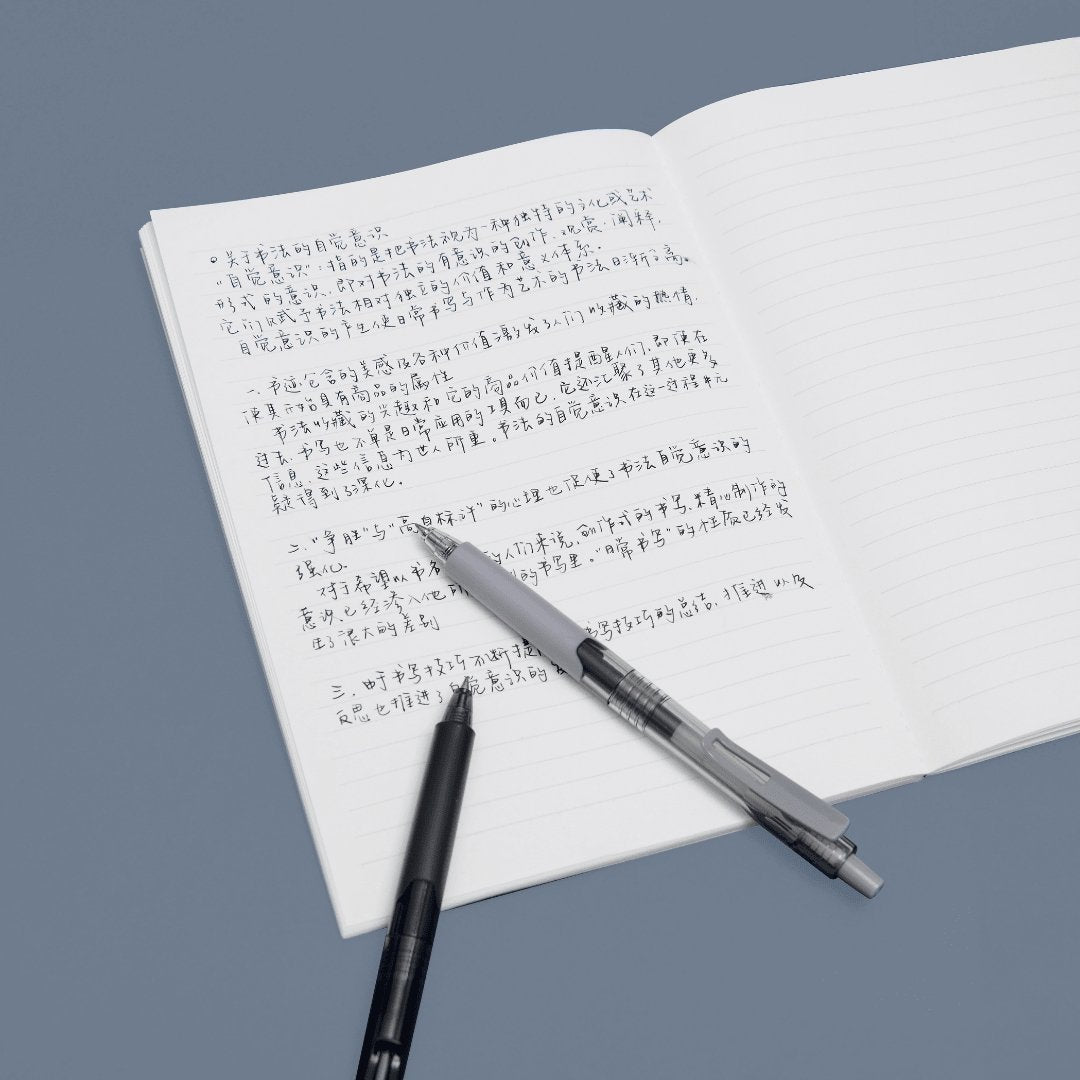 关于书法的自觉意识
“自觉意识”：指的是把书法视为一种独特的文化或艺术
形式的意识，即对书法的有意识的创作、观赏、阐释，
它们赋予书法相对独立的价值和意义体系。
自觉意识的产生使日常书写与作为艺术的书法日渐分离。
一、书迹包含的美感及各种价值激发了人们收藏的热情，
使其开始具有商品的属性
书法收藏的兴趣和它的商品价值提醒人们，即便在
过去，书写也不单是日常应用的工具而已，它还汇聚了其他更多
信息，这些信息为世人所重。书法的自觉意识在这一过程中无
疑得到了深化。
二、“争胜”与“高自标许”的心理也促使了书法自觉意识的
强化。
对于希望以书名 的人们来说，创作式的书写、精心制作的
意识已经渗入他 的书写里。“日常书写”的性质已经发
生了很大的差别
三、由于书写技巧不断提 书写技巧的总结、推进以及
反思也推进了自觉意识的